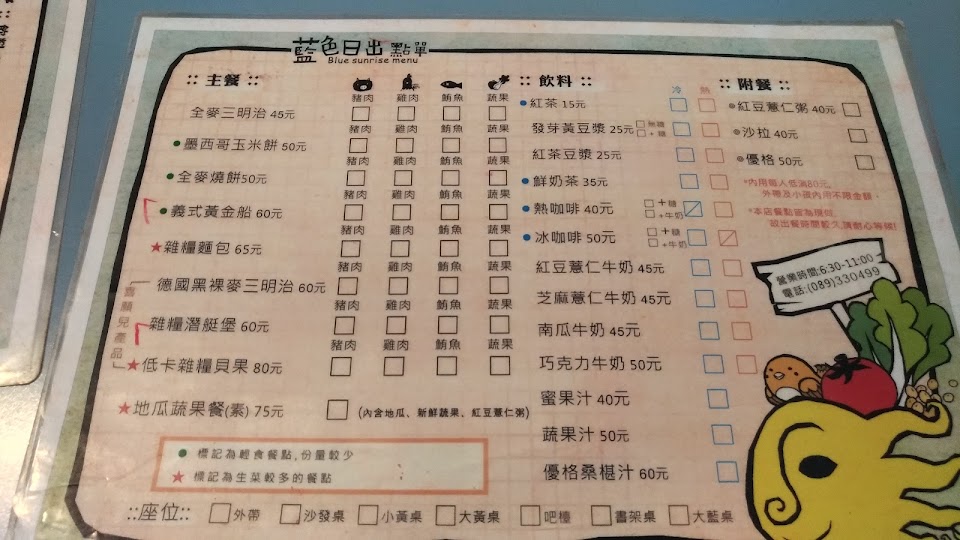 藍色日出 點單
Blue sunrise menu
:: 主餐 ::
豬肉 雞肉 鮪魚 蔬果
全麥三明治 45元
豬肉 雞肉 鮪魚 蔬果
●墨西哥玉米餅 50元
豬肉 雞肉 鮪魚 蔬果
●全麥燒餅50元
豬肉 雞肉 鮪魚 蔬果
●義式黃金船 60元
豬肉 雞肉 鮪魚 蔬果
★雜糧麵包 65元
豬肉 雞肉 鮪魚 蔬果
德國黑裸麥三明治 60元
豬肉 雞肉 鮪魚 蔬果
雜糧潛艇堡 60元
豬肉 雞肉 鮪魚 蔬果
★低卡雜糧貝果 80元
喜願兒產品
★地瓜蔬果餐(素) 75元 (內含地瓜、新鮮蔬果、紅豆薏仁粥)
● 標記為輕食餐點,份量較少
★ 標記為生菜較多的餐點
:: 飲料 ::
冷 熱
●紅茶 15元
發芽黃豆漿 25元 無糖 +糖
紅茶豆漿 25元
●鮮奶茶 35元
●熱咖啡 40元 +糖 +牛奶
●冰咖啡 50元 +糖 +牛奶
紅豆薏仁牛奶 45元
芝麻薏仁牛奶 45元
南瓜牛奶 45元
巧克力牛奶 50元
蜜果汁 40元
蔬果汁 50元
優格桑椹汁 60元
:: 附餐 ::
●紅豆薏仁粥 40元
●沙拉 40元
●優格 50元
*內用每人低消80元,
外帶及小孩內用不限金額.
*本店餐點皆為現做,
故出餐時間較久請耐心等候!
營業時間:6:30-11:00
電話:(089)330499
::座位:: 外帶 沙發桌 小黃桌 大黃桌 吧檯 書架桌 大藍桌